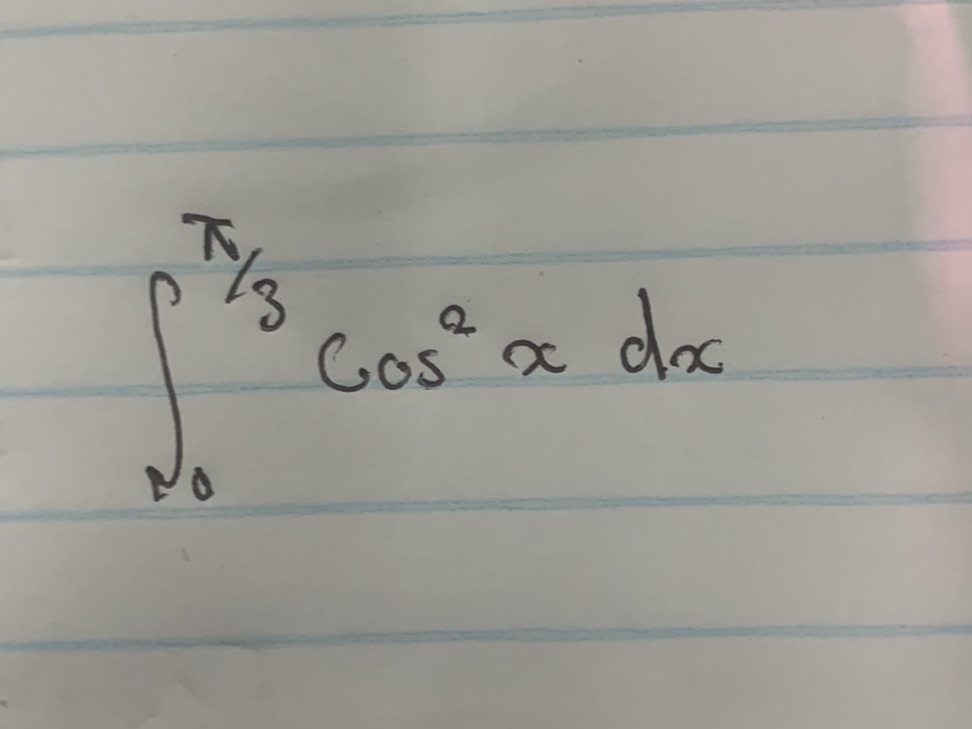 ∫₀^{π/3} cos² x dx